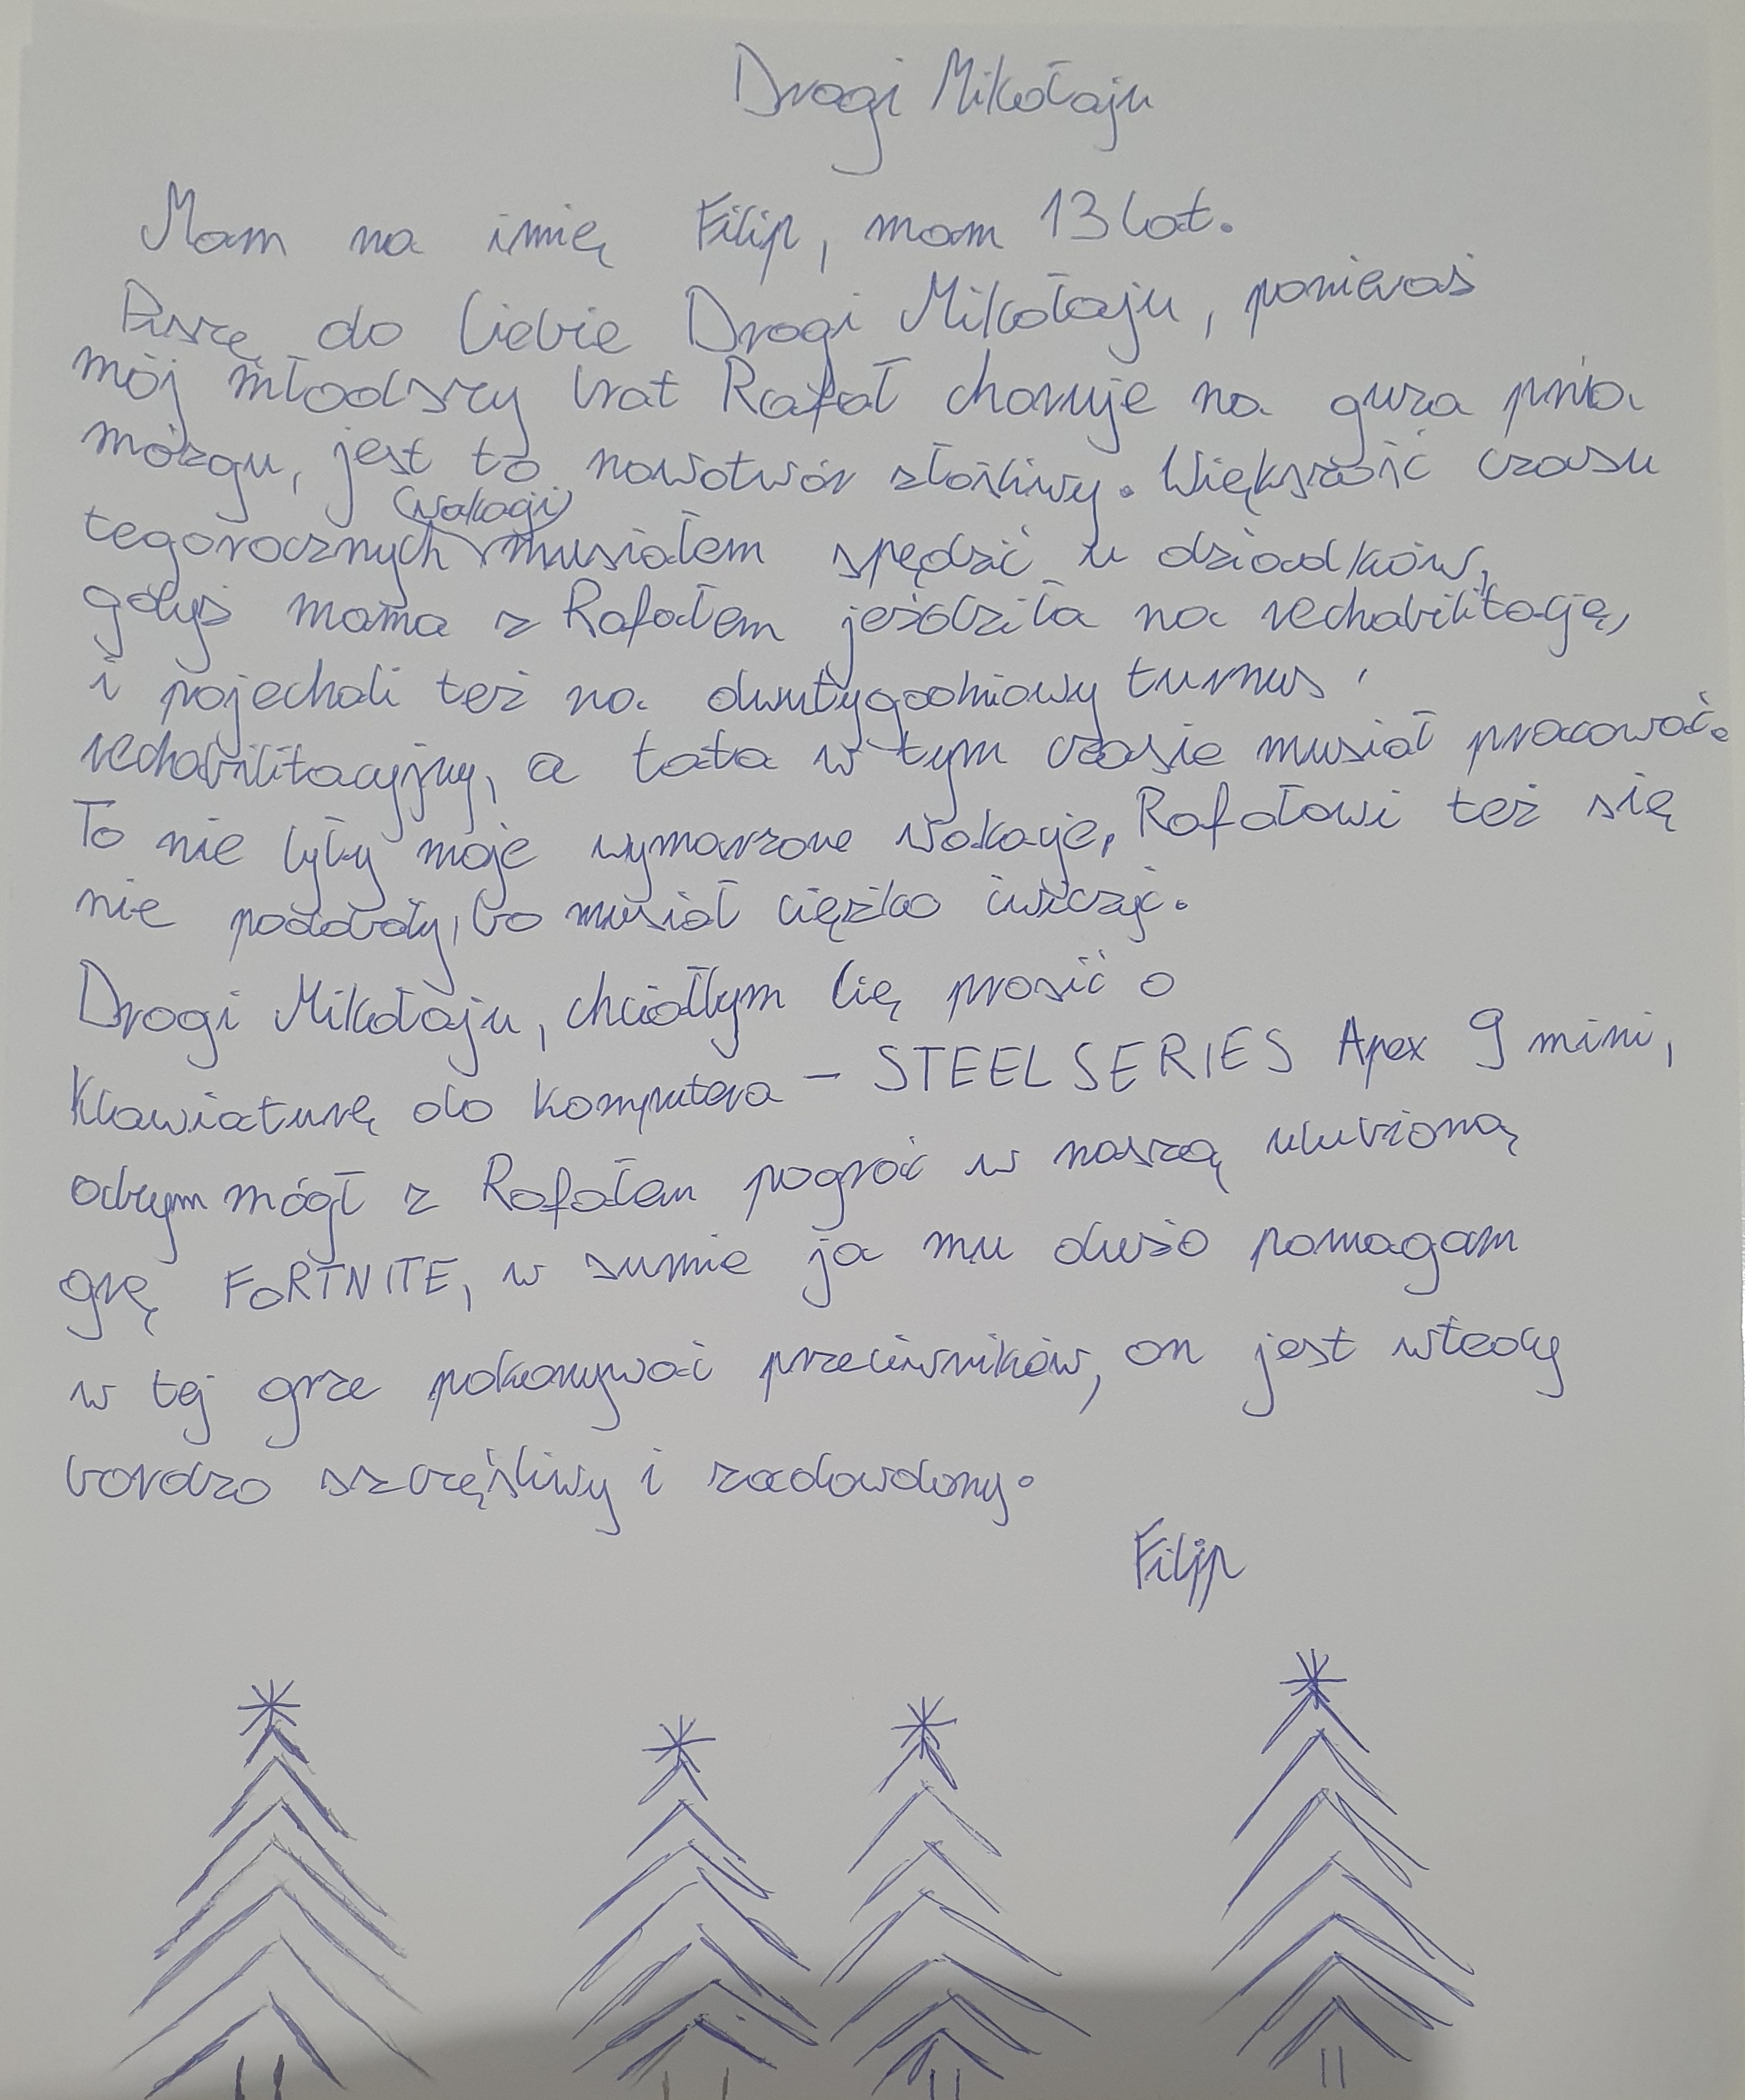 Drogi Mikołaju
Mam na imię Filip, mam 13 lat.
Piszę do Ciebie Drogi Mikołaju, ponieważ
mój młodszy brat Rafał choruje na guza pnia
mózgu, jest to nowotwór złośliwy. Większość czasu
(wakacji)
tegorocznych musiałem spędzić u dziadków,
gdyż mama z Rafałem jeździła na rechabilitację,
i pojechali też na dwutygodniowy turnus
rechabilitacyjny, a tata w tym czasie musiał pracować.
To nie były moje wymarzone wakacje, Rafałowi też się
nie podobały, bo musiał ciężko ćwiczyć.
Drogi Mikołaju, chciałbym Cię prosić o
Klawiaturę do komputera - STEELSERIES Apex 9 mini,
abym mógł z Rafałem pograć w naszą ulubioną
grę FORTNITE, w sumie ja mu dużo pomagam
w tej grze pokonywać przeciwników, on jest wtedy
bardzo szczęśliwy i zadowolony.
Filip